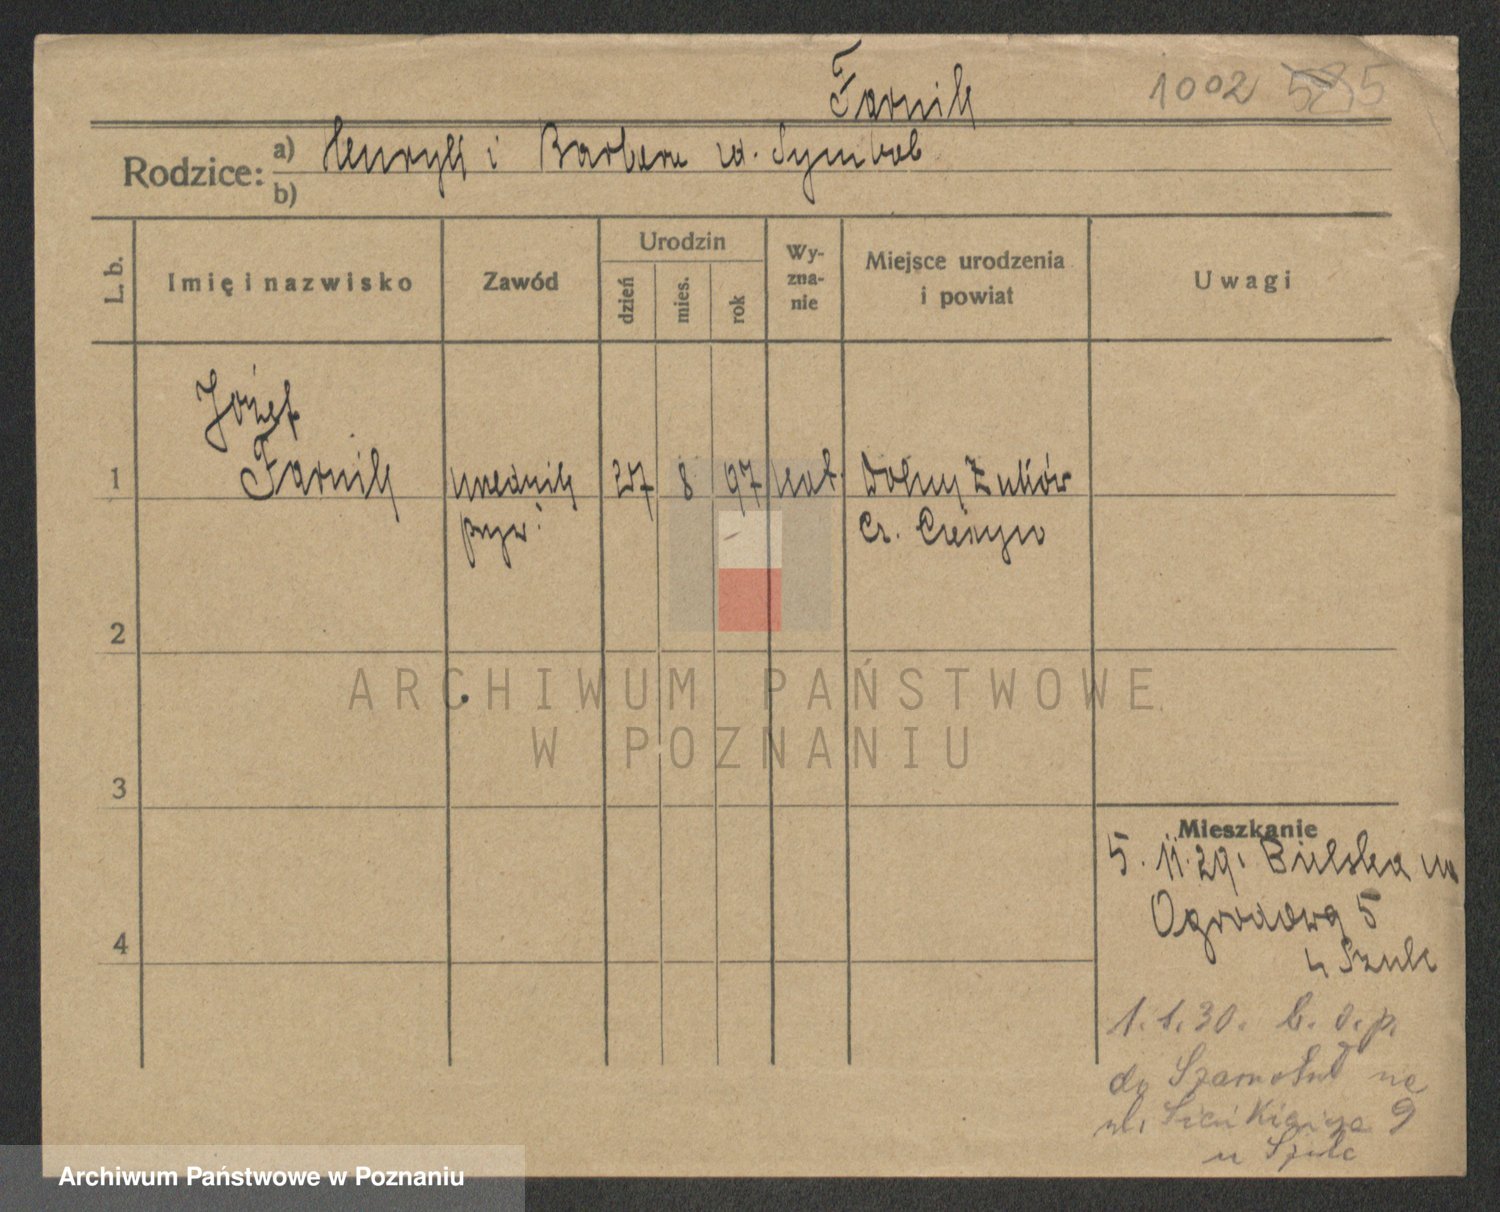 Farnik
1002 535
Rodzice: a) Henryk i Barbara zd. Symbol
b)
L. b.
Imię i nazwisko
Zawód
Urodzin
dzień
mies.
rok
Wy-
zna-
nie
Miejsce urodzenia
i powiat
Uwagi
Józef
1 Farnik urzednik 27 8 97 kat. Dolny Żuków
pryw. Cz. Cieszyn
2
3
4
Mieszkanie
5. 11. 29. Bielska na
Ogrodową 5
u Szulc
1. 1. 30. b. o. p.
do Szamotuł na
ul. Sienkiewicza 9
u Szulc
ARCHIWUM PAŃSTWOWE
W POZNANIU
Archiwum Państwowe w Poznaniu